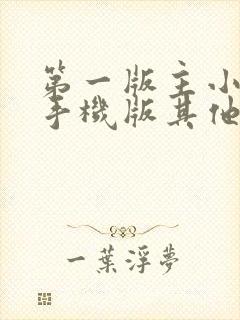 第一版主小
手機版其他
一葉浮夢